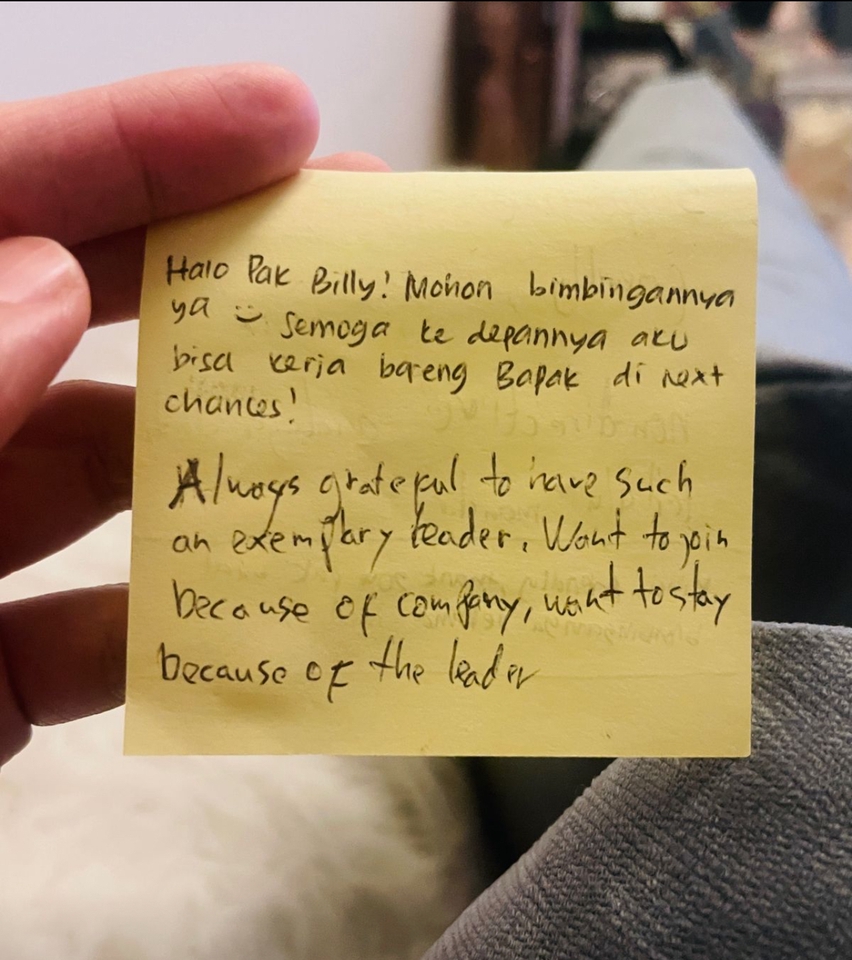 Halo Pak Billy! Mohon bimbingannya
ya Semoga ke depannya aku
bisa kerja bareng Bapak di next
chances!
Always grateful to have such
an exemplary leader. Want to join
because of company, want to stay
because of the leader